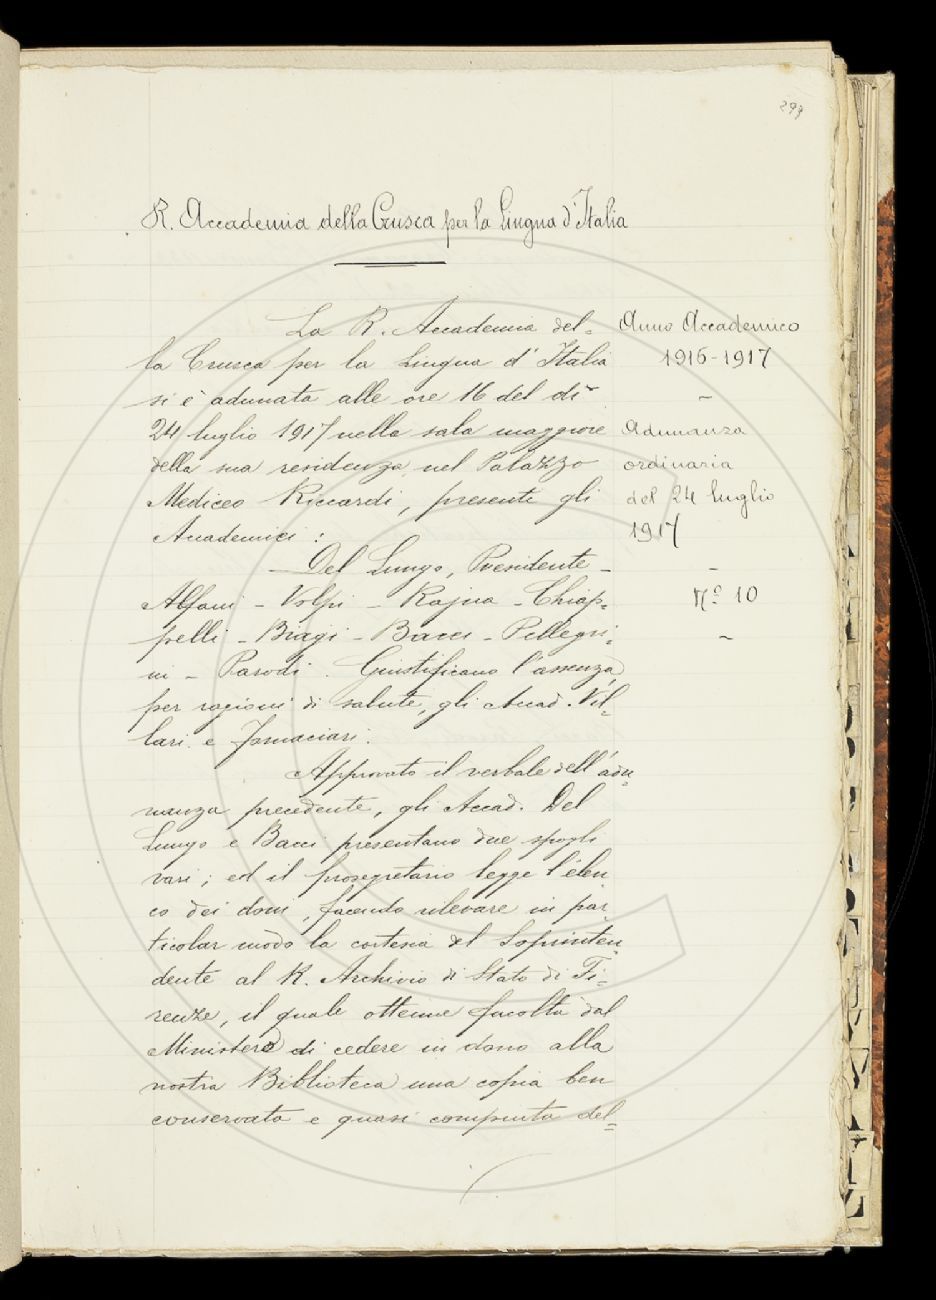 293
R. Accademia della Crusca per la Lingua d'Italia
La R. Accademia del=
la Crusca per la Lingua d'Italia
si è adunata alle ore 16 del dì
24 luglio 1917 nella sala maggiore
della sua residenza nel Palazzo
Mediceo Riccardi, presenti gli
Accademici:
Del Lungo, Presidente -
Alfani - Volpi - Rajna - Chiap=
pelli - Biagi - Bacci - Pellegri=
ni - Parodi. Giustificano l'assenza,
per ragioni di salute, gli Accad. Vil=
lari e Fornaciari.
Approvato il verbale dell'adu=
nanza precedente, gli Accad. Del
Lungo e Bacci presentano due spogli
vari; ed il prosegretario legge l'elen
co dei doni, facendo rilevare in par
ticolar modo la cortesia del Soprinten
dente al R. Archivio di Stato di Fi=
renze, il quale ottenne facoltà dal
Ministero di cedere in dono alla
nostra Biblioteca una copia ben
conservata e quasi compiuta del=
Anno Accademico
1916-1917
Adunanza
ordinaria
del 24 luglio
1917
N.º 10